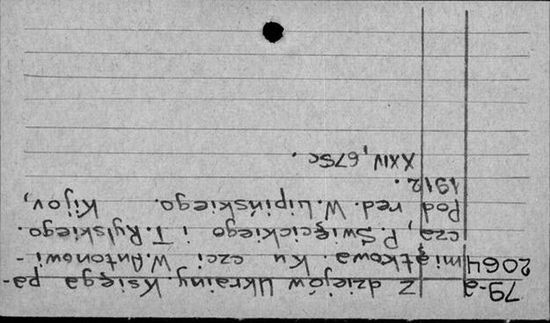 79-a Z dziejów Ukrainy. Księga pa-
2064 miątkowa. Ku czci W. Antonowi-
cza, P. Święcickiego i T. Rylskiego.
Pod red. W. Lipińskiego. Kijov,
1912.
XXIV, 675c.